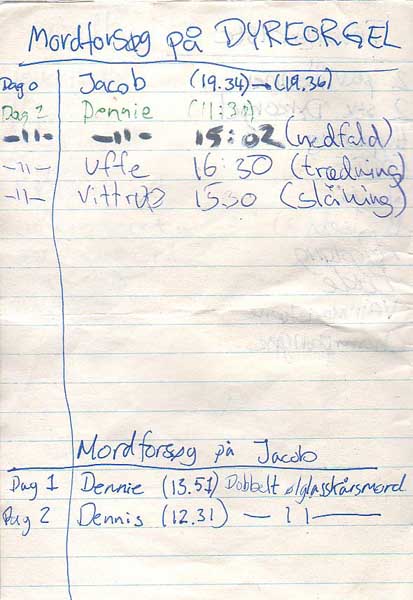 Mordforsøg på DYREORGEL
Dag 0 Jacob (19.34) → (19.36)
Dag 2 Dennie (11:30)
-11- -11- 15:02 (nedfald)
-11- Uffe 16:30 (trædning)
-11- Vittrup 15.30 (slåning)
Mordforsøg på Jacob
Dag 1 Dennie (13.51) Dobbelt ølglasskårsmord
Dag 2 Dennis (12.31) — 11 —